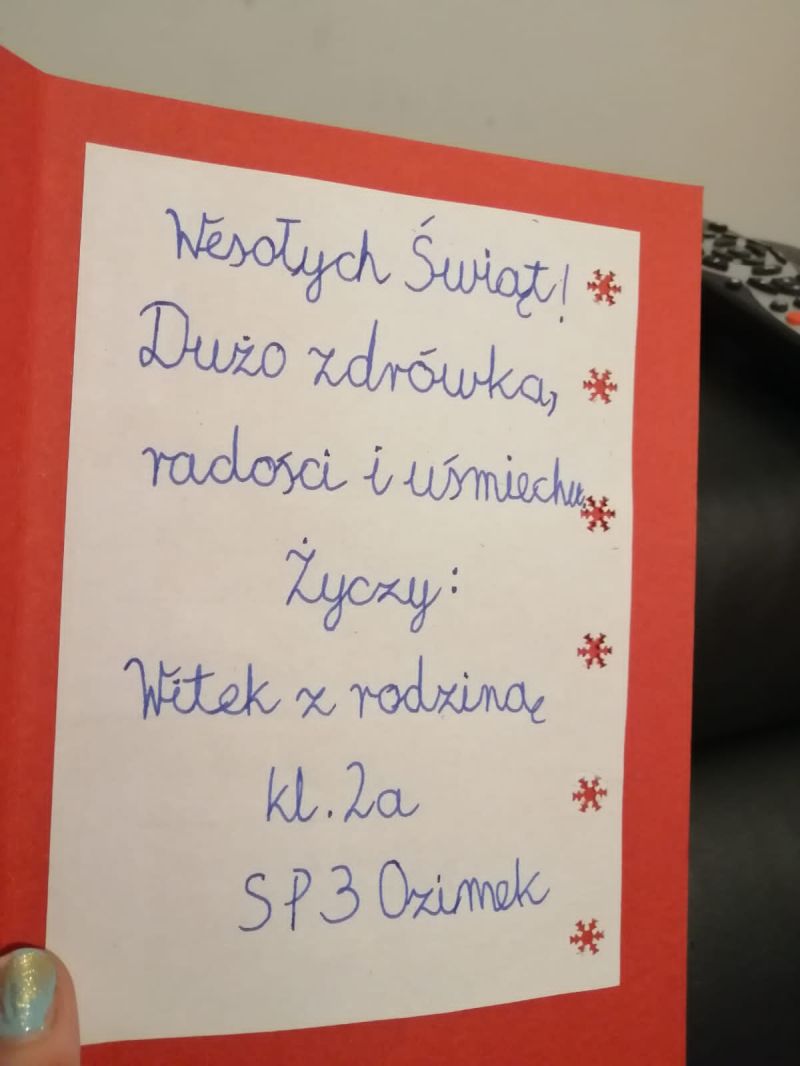 Wesołych Świąt!
Dużo zdrówka,
radości i uśmiechu.
Życzy:
Witek z rodziną
kl. 2a
SP3 Ozimek